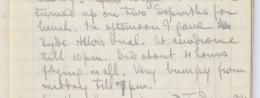 turned up on two Sopwiths for
lunch. In afternoon I gave
Hyde dual. At aerodrome
till 10pm. Did about 4 hours
flying in all. Very bumpy from
midday till 7pm.